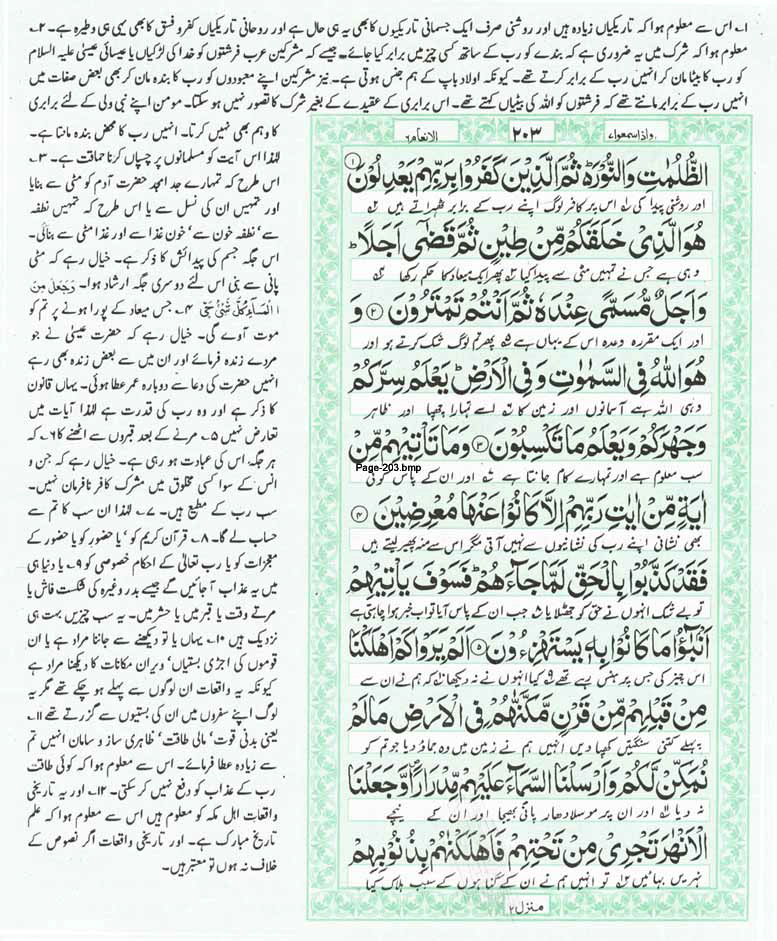 ۱؎ اس سے معلوم ہوا کہ تاریکیاں زیادہ ہیں اور روشنی صرف ایک جسمانی تاریکیوں کا بھی یہ ہی حال ہے اور روحانی تاریکیاں کفر و فسق کا بھی یہی ہی وطیرہ ہے۔ ۲؎
معلوم ہوا کہ شرک میں یہ ضروری ہے کہ بندے کو رب کے ساتھ کسی چیز میں برابر کیا جائے۔ جیسے کہ مشرکین عرب فرشتوں کو خدا کی لڑکیاں یا عیسائی عیسیٰ علیہ السلام
کو رب کا بیٹا مان کر انہیں رب کے برابر کرتے تھے۔ کیونکہ اولاد باپ کے ہم جنس ہوتی ہے۔ نیز مشرکین اپنے معبودوں کو رب کا بندہ مان کر بھی بعض صفات میں
انہیں رب کے برابر مانتے تھے کہ فرشتوں کو اللہ کی بیٹیاں کہتے تھے۔ اس برابری کے عقیدے کے بغیر شرک کا تصور نہیں ہو سکتا۔ مومن اپنے نبی ولی کے لئے برابری
کا وہم بھی نہیں کرتا۔ انہیں رب کا محض بندہ مانتا ہے۔
لہٰذا اس آیت کو مسلمانوں پر چسپاں کرنا حماقت ہے۔ ۳؎
اس طرح کہ تمہارے جد امجد حضرت آدم کو مٹی سے بنایا
اور تمہیں ان کی نسل سے یا اس طرح کہ تمہیں نطفہ
سے، نطفہ خون سے، خون غذا سے اور غذا مٹی سے بنائی۔
اس جگہ جسم کی پیدائش کا ذکر ہے۔ خیال رہے کہ مٹی
پانی سے بنی اس لئے دوسری جگہ ارشاد ہوا۔ وَجَعَلَ مِنَ
الْمَآءِ كُلَّ شَىْءٍ حَىٍّ ۴؎ جس میعاد کے پورا ہونے پر تم کو
موت آوے گی۔ خیال رہے کہ حضرت عیسیٰ نے جو
مردے زندہ فرمائے اور ان میں سے بعض زندہ بھی رہے
انہیں حضرت کی دعا سے دوبارہ عمر عطا ہوئی۔ یہاں قانون
کا ذکر ہے اور وہ رب کی قدرت ہے لہٰذا آیات میں
تعارض نہیں ۵؎ مرنے کے بعد قبروں سے اٹھنے کا ۶؎ کہ
ہر جگہ اس کی عبادت ہو رہی ہے۔ خیال رہے کہ جن و
انس کے سوا کسی مخلوق میں مشرک کافر نافرمان نہیں۔
سب رب کے مطیع ہیں۔ ۷؎ لہٰذا ان سب کا تم سے
حساب لے گا۔ ۸؎ قرآن کریم کو، یا حضور کو یا حضور کے
معجزات کو یا رب تعالیٰ کے احکام خصوصی کو ۹؎ یا دنیا ہی
میں یہ عذاب آ جائیں گے جیسے بدر وغیرہ کی شکست فاش یا
مرتے وقت یا قبر میں یا حشر میں۔ یہ سب چیزیں بہت ہی
نزدیک ہیں ۱۰؎ یہاں یا تو دیکھنے سے جاننا مراد ہے یا ان
قوموں کی اجڑی بستیاں، ویران مکانات کا دیکھنا مراد ہے
کیونکہ یہ واقعات ان لوگوں سے پہلے ہو چکے تھے مگر یہ
لوگ اپنے سفروں میں ان کی بستیوں سے گزرتے تھے ۱۱؎
یعنی بدنی قوت، مالی طاقت، ظاہری ساز و سامان انہیں تم
سے زیادہ عطا فرمائے۔ اس سے معلوم ہوا کہ کوئی طاقت
رب کے عذاب کو دفع نہیں کر سکتی۔ ۱۲؎ اور یہ تاریخی
واقعات اہل مکہ کو معلوم ہیں اس سے معلوم ہوا کہ علم
تاریخ مبارک ہے۔ اور تاریخی واقعات اگر نصوص کے
خلاف نہ ہوں تو معتبر ہیں۔
واذا سمعوا ۷ ۲۰۳ الانعام ۶
الظُّلُمٰتِ وَالنُّوْرَ ۬ؕ ثُمَّ الَّذِيْنَ كَفَرُوْا بِرَبِّهِمْ يَعْدِلُوْنَ ①
اور روشنی پیدا کی ۱؎ اس پر کافر لوگ اپنے رب کے برابر ٹھہراتے ہیں ۲؎
هُوَ الَّذِىْ خَلَقَكُمْ مِّنْ طِيْنٍ ثُمَّ قَضٰۤى اَجَلًا ؕ
وہی ہے جس نے تمہیں مٹی سے پیدا کیا ۳؎ پھر ایک میعاد کا حکم رکھا ۴؎
وَاَجَلٌ مُّسَمًّى عِنْدَهٗ ثُمَّ اَنْتُمْ تَمْتَرُوْنَ ② وَ
اور ایک مقررہ وعدہ اس کے یہاں ہے ۵؎ پھر تم لوگ شک کرتے ہو اور
هُوَ اللّٰهُ فِى السَّمٰوٰتِ وَفِى الْاَرْضِ ؕ يَعْلَمُ سِرَّكُمْ
وہی اللہ ہے آسمانوں اور زمین کا ۶؎ اسے تمہارا چھپا اور ظاہر
وَجَهْرَكُمْ وَيَعْلَمُ مَا تَكْسِبُوْنَ ③ وَمَا تَاْتِيْهِمْ مِّنْ
Page-203.bmp
سب معلوم ہے اور تمہارے کام جانتا ہے ۷؎ اور ان کے پاس کوئی
اٰيَةٍ مِّنْ اٰيٰتِ رَبِّهِمْ اِلَّا كَانُوْا عَنْهَا مُعْرِضِيْنَ ④
بھی نشانی اپنے رب کی نشانیوں سے نہیں آتی مگر اس سے منہ پھیر لیتے ہیں
فَقَدْ كَذَّبُوْا بِالْحَقِّ لَمَّا جَآءَهُمْ ؕ فَسَوْفَ يَاْتِيْهِمْ
تو بے شک انہوں نے حق کو جھٹلایا ۸؎ جب ان کے پاس آیا تو اب خبر ہوا چاہتی ہے
اَنْۢبٰٓؤُا مَا كَانُوْا بِهٖ يَسْتَهْزِءُوْنَ ⑤ اَلَمْ يَرَوْا كَمْ اَهْلَكْنَا
اس چیز کی جس پر ہنس رہے تھے ۹؎ کیا انہوں نے نہ دیکھا ۱۰؎ کہ ہم نے ان سے
مِنْ قَبْلِهِمْ مِّنْ قَرْنٍ مَّكَّنّٰهُمْ فِى الْاَرْضِ مَا لَمْ
پہلے کتنی سنگتیں کھپا دیں انہیں ہم نے زمین میں وہ جماؤ دیا جو تم کو
نُمَكِّنْ لَّكُمْ وَاَرْسَلْنَا السَّمَآءَ عَلَيْهِمْ مِّدْرَارًا ۪ وَّجَعَلْنَا
نہ دیا ۱۱؎ اور ان پر موسلا دھار پانی بھیجا اور ان کے نیچے
الْاَنْهٰرَ تَجْرِىْ مِنْ تَحْتِهِمْ فَاَهْلَكْنٰهُمْ بِذُنُوْبِهِمْ
نہریں بہائیں ۱۲؎ تو انہیں ہم نے ان کے گناہوں کے سبب ہلاک کیا
منزل ۲